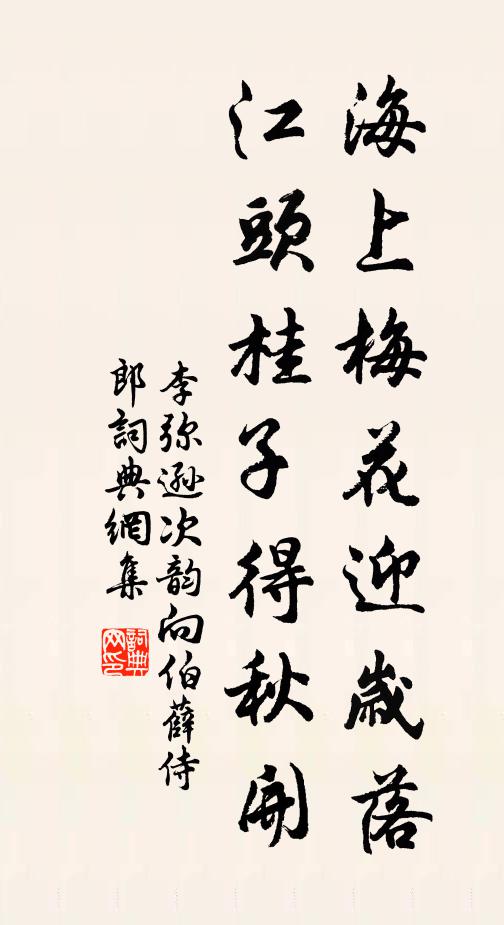 海上梅花迎歲落
江頭桂子得秋開
李弥遜次韵向伯薛侍
郎詞典網集
詞典网印